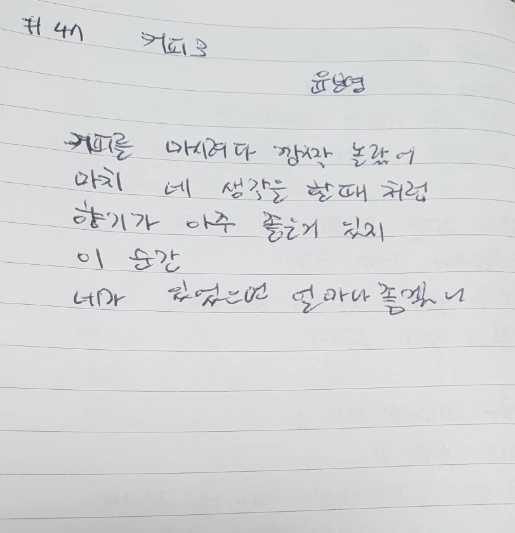 # 47 커피 3
윤보영
커피를 마시려다 깜짝 놀랐어
마치 네 생각을 할때 처럼
향기가 아주 좋은거 있지
이 순간
네가 있었으면 얼마나 좋겠니